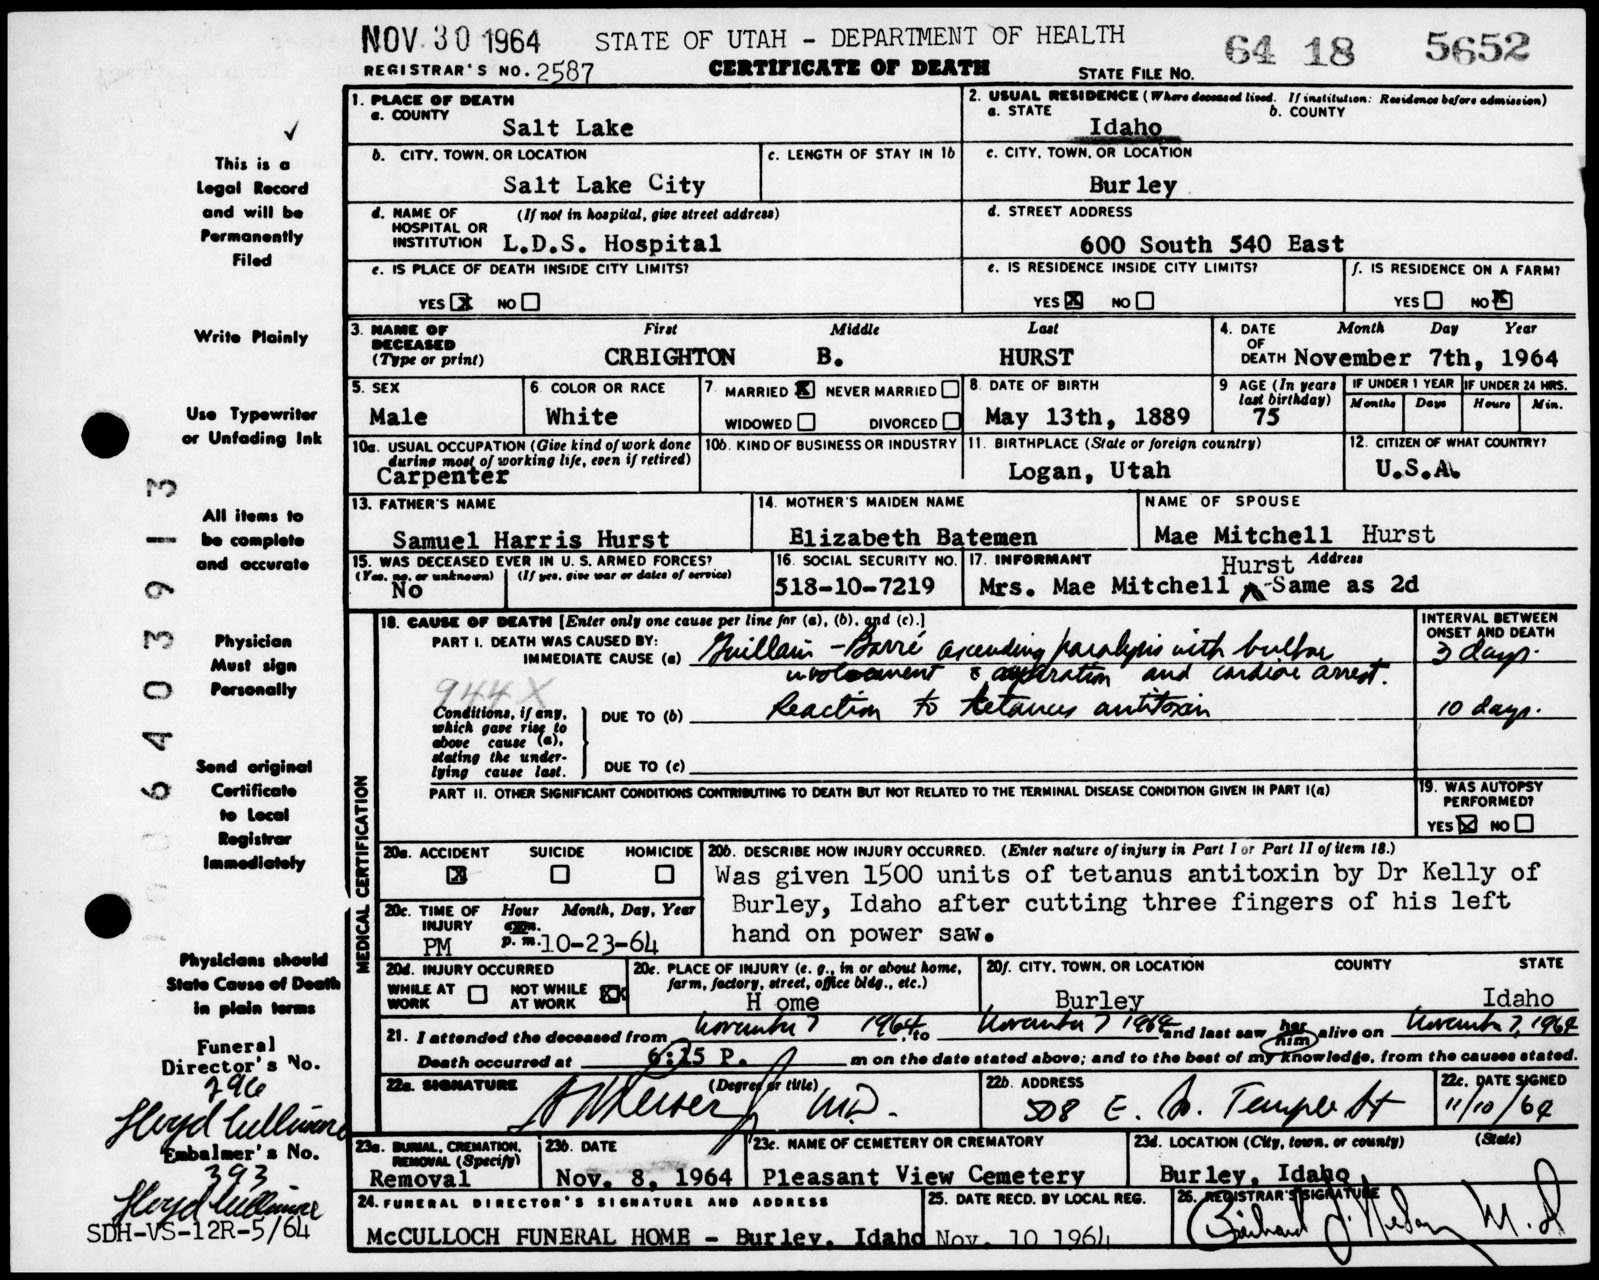 NOV 30 1964 STATE OF UTAH - DEPARTMENT OF HEALTH 64 18 5652
REGISTRAR'S NO. 2587 CERTIFICATE OF DEATH STATE FILE NO.
1. PLACE OF DEATH
a. COUNTY
Salt Lake
2. USUAL RESIDENCE (Where deceased lived. If institution: Residence before admission)
a. STATE b. COUNTY
Idaho
b. CITY, TOWN, OR LOCATION c. LENGTH OF STAY IN 1b
Salt Lake City
c. CITY, TOWN, OR LOCATION
Burley
d. NAME OF HOSPITAL OR INSTITUTION (If not in hospital, give street address)
L.D.S. Hospital
d. STREET ADDRESS
600 South 540 East
e. IS PLACE OF DEATH INSIDE CITY LIMITS?
YES X NO
e. IS RESIDENCE INSIDE CITY LIMITS?
YES X NO
f. IS RESIDENCE ON A FARM?
YES NO X
3. NAME OF DECEASED (Type or print) First Middle Last
CREIGHTON B. HURST
4. DATE OF DEATH Month Day Year
November 7th, 1964
5. SEX
Male
6. COLOR OR RACE
White
7. MARRIED X NEVER MARRIED
WIDOWED DIVORCED
8. DATE OF BIRTH
May 13th, 1889
9 AGE (In years last birthday)
75
IF UNDER 1 YEAR IF UNDER 24 HRS.
Months Days Hours Min.
10a. USUAL OCCUPATION (Give kind of work done during most of working life, even if retired)
Carpenter
10b. KIND OF BUSINESS OR INDUSTRY
11. BIRTHPLACE (State or foreign country)
Logan, Utah
12. CITIZEN OF WHAT COUNTRY?
U.S.A.
13. FATHER'S NAME
Samuel Harris Hurst
14. MOTHER'S MAIDEN NAME
Elizabeth Batemen
NAME OF SPOUSE
Mae Mitchell Hurst
15. WAS DECEASED EVER IN U. S. ARMED FORCES?
(Yes, no, or unknown) (If yes, give war or dates of service)
No
16. SOCIAL SECURITY NO.
518-10-7219
17. INFORMANT Address
Hurst
Mrs. Mae Mitchell -Same as 2d
MEDICAL CERTIFICATION
18. CAUSE OF DEATH [Enter only one cause per line for (a), (b), and (c).]
PART I. DEATH WAS CAUSED BY:
IMMEDIATE CAUSE (a) Guillain-Barré ascending paralysis with bulbar
involvement & aspiration and cardiac arrest.
INTERVAL BETWEEN ONSET AND DEATH
3 days.
944X
Conditions, if any, which gave rise to above cause (a), stating the underlying cause last.
DUE TO (b) Reaction to tetanus antitoxin
10 days.
DUE TO (c)
PART II. OTHER SIGNIFICANT CONDITIONS CONTRIBUTING TO DEATH BUT NOT RELATED TO THE TERMINAL DISEASE CONDITION GIVEN IN PART I(a)
19. WAS AUTOPSY PERFORMED?
YES X NO
20a. ACCIDENT SUICIDE HOMICIDE
X
20b. DESCRIBE HOW INJURY OCCURRED. (Enter nature of injury in Part I or Part II of item 18.)
Was given 1500 units of tetanus antitoxin by Dr Kelly of
Burley, Idaho after cutting three fingers of his left
hand on power saw.
20c. TIME OF INJURY Hour Month, Day, Year
PM p. m. 10-23-64
20d. INJURY OCCURRED
WHILE AT WORK NOT WHILE AT WORK X
20e. PLACE OF INJURY (e. g., in or about home, farm, factory, street, office bldg., etc.)
H ome
20f. CITY, TOWN, OR LOCATION COUNTY STATE
Burley Idaho
21. I attended the deceased from November 7 1964, to November 7 1964 and last saw her him alive on November 7, 1964
Death occurred at 6:15 P. m on the date stated above; and to the best of my knowledge, from the causes stated.
22a. SIGNATURE (Degree or title)
M.D.
22b. ADDRESS
508 E. So. Temple St
22c. DATE SIGNED
11/10/64
23a. BURIAL, CREMATION, REMOVAL (Specify)
Removal
23b. DATE
Nov. 8, 1964
23c. NAME OF CEMETERY OR CREMATORY
Pleasant View Cemetery
23d. LOCATION (City, town, or county) (State)
Burley, Idaho
24. FUNERAL DIRECTOR'S SIGNATURE AND ADDRESS
McCULLOCH FUNERAL HOME - Burley, Idaho
25. DATE RECD. BY LOCAL REG.
Nov. 10 1964
26. REGISTRAR'S SIGNATURE
M.D
This is a
Legal Record
and will be
Permanently
Filed
Write Plainly
Use Typewriter
or Unfading Ink
All items to
be complete
and accurate
Physician
Must sign
Personally
Send original
Certificate
to Local
Registrar
Immediately
Physicians should
State Cause of Death
in plain terms
Funeral
Director's No.
296
Embalmer's No.
393
SDH-VS-12R-5/64